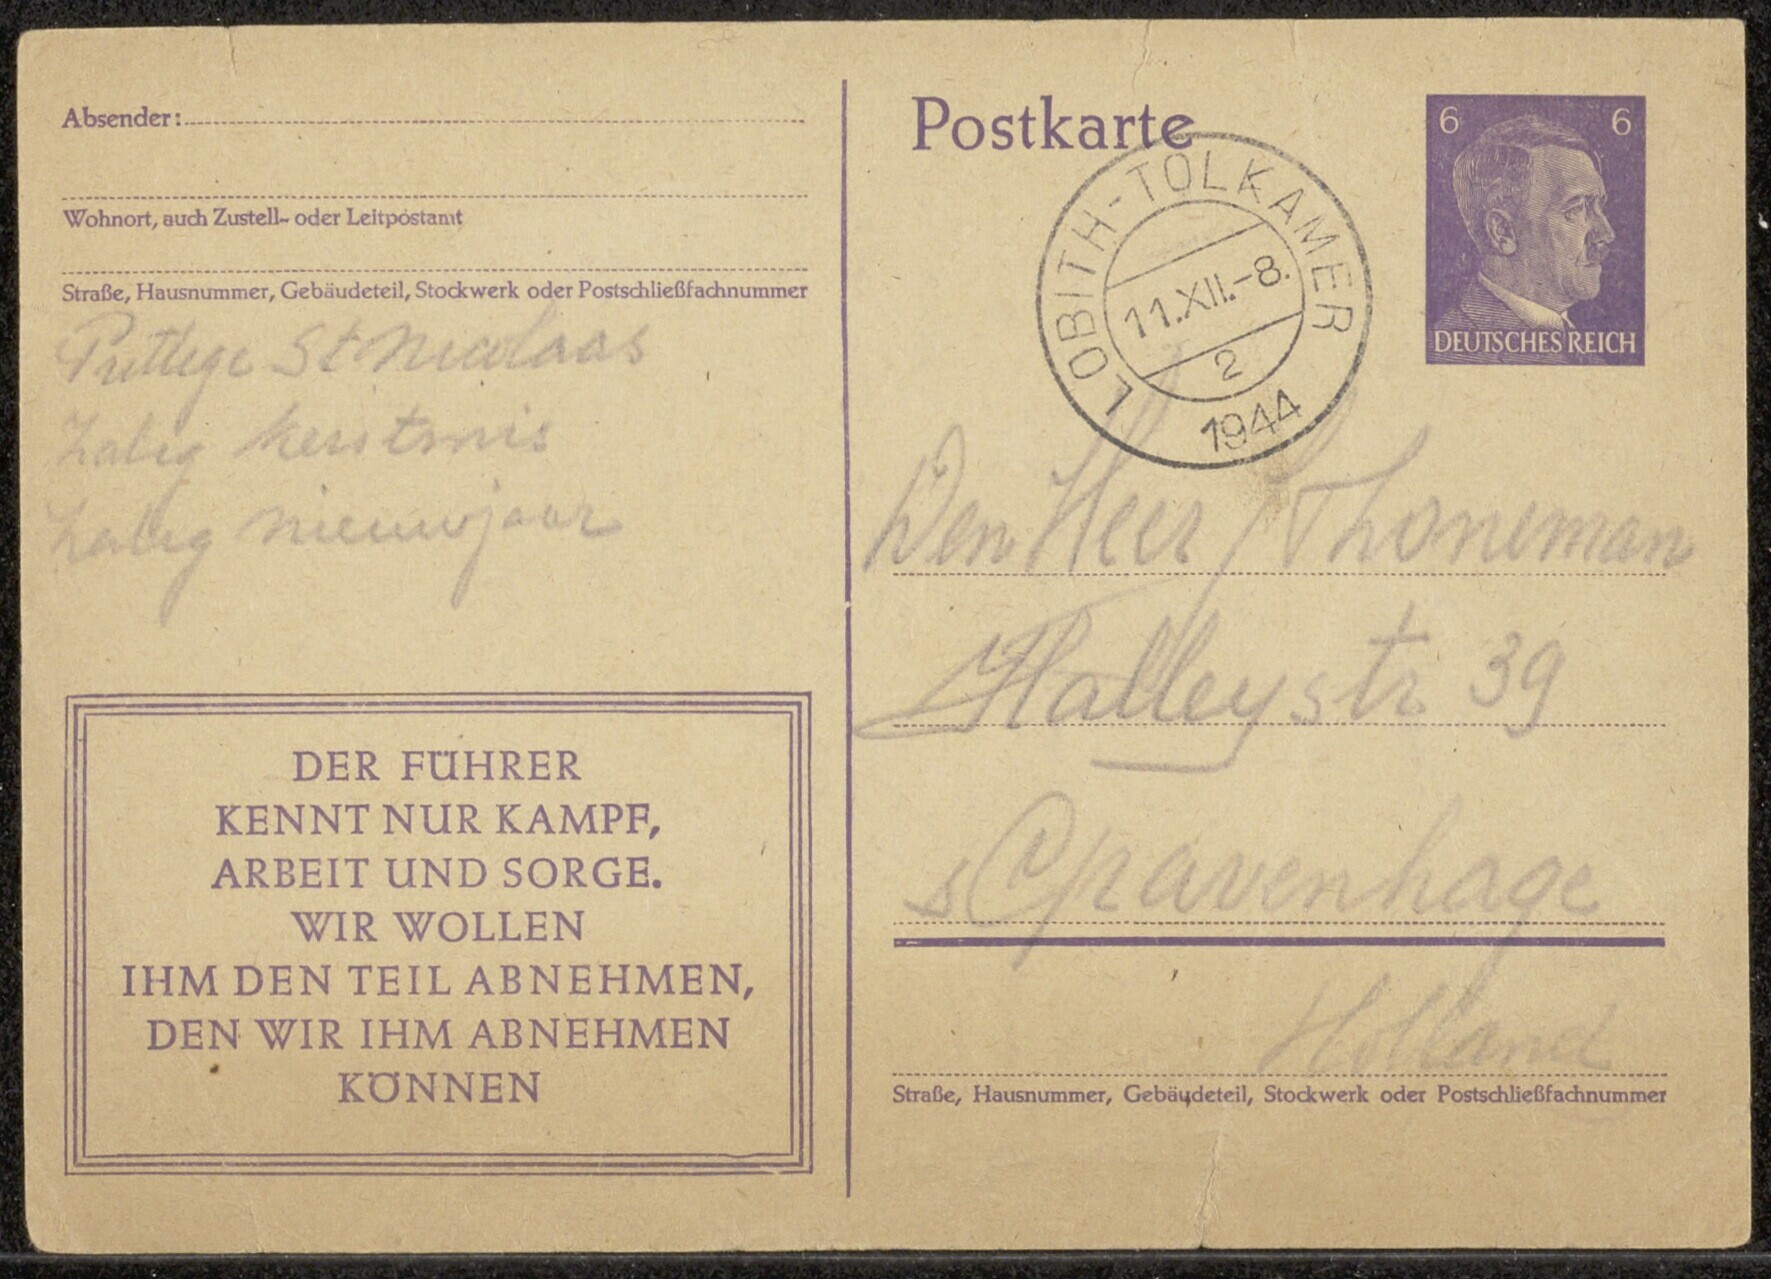 Absender:
Wohnort, auch Zustell- oder Leitpostamt
Straße, Hausnummer, Gebäudeteil, Stockwerk oder Postschließfachnummer
Prettige St Nicolaas
Zalig Kerstmis
Zalig nieuwjaar
DER FÜHRER
KENNT NUR KAMPF,
ARBEIT UND SORGE.
WIR WOLLEN
IHM DEN TEIL ABNEHMEN,
DEN WIR IHM ABNEHMEN
KÖNNEN
Postkarte
LOBITH-TOLKAMER
11.XII.-8.
2
1944
6 6
DEUTSCHES REICH
Den Heer Thoneman
Halleystr 39
s Gravenhage
Holland
Straße, Hausnummer, Gebäudeteil, Stockwerk oder Postschließfachnummer